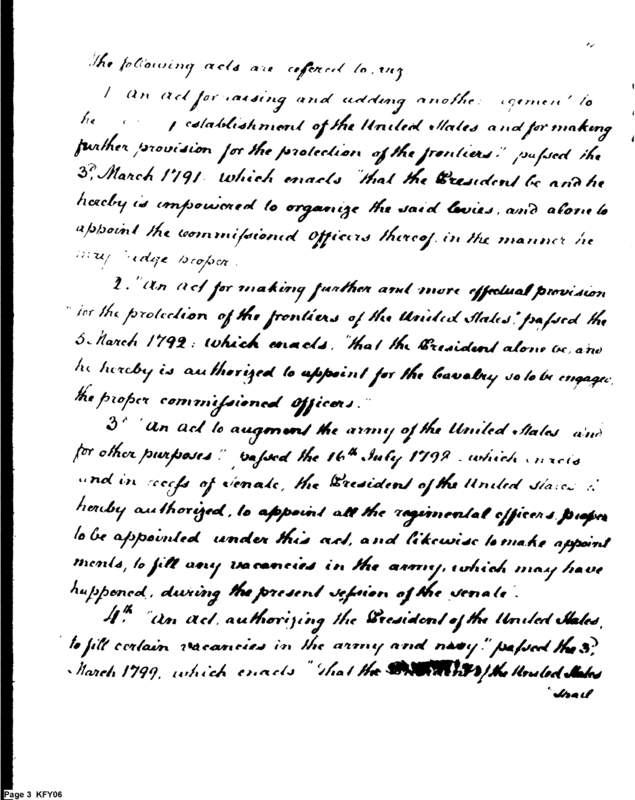 The following acts are refered to, viz
1 An Act for raising and adding another regiment to
the establishment of the United States and for making
further provision for the protection of the frontiers." passed the
3d. March 1791. which enacts "that the President be and he
hereby is impowered to organize the said levies, and alone to
appoint the commissioned Officers thereof, in the manner he
may judge proper.
2. "An Act for making further and more effectual provision
"for the protection of the frontiers of the United States." passed the
5 March 1792: which enacts, "that the President alone be, and
he hereby is authorized to appoint for the Cavalry so to be engaged,
the proper commissioned Officers."
3d "An Act to augment the army of the United States and
for other purposes." passed the 16th July 1798. which enacts
and in recess of Senate, the President of the United States is
hereby authorized, to appoint all the regimental officers, proper
to be appointed under this act, and likewise to make appoint
ments, to fill any vacancies in the army, which may have
happened, during the present session of the senate.
4th. "An Act, authorizing the President of the United States,
to fill certain vacancies in the army and navy." passed the 3d.
March 1799, which enacts "That the President of the United States
"shall
Page 3 KFY06